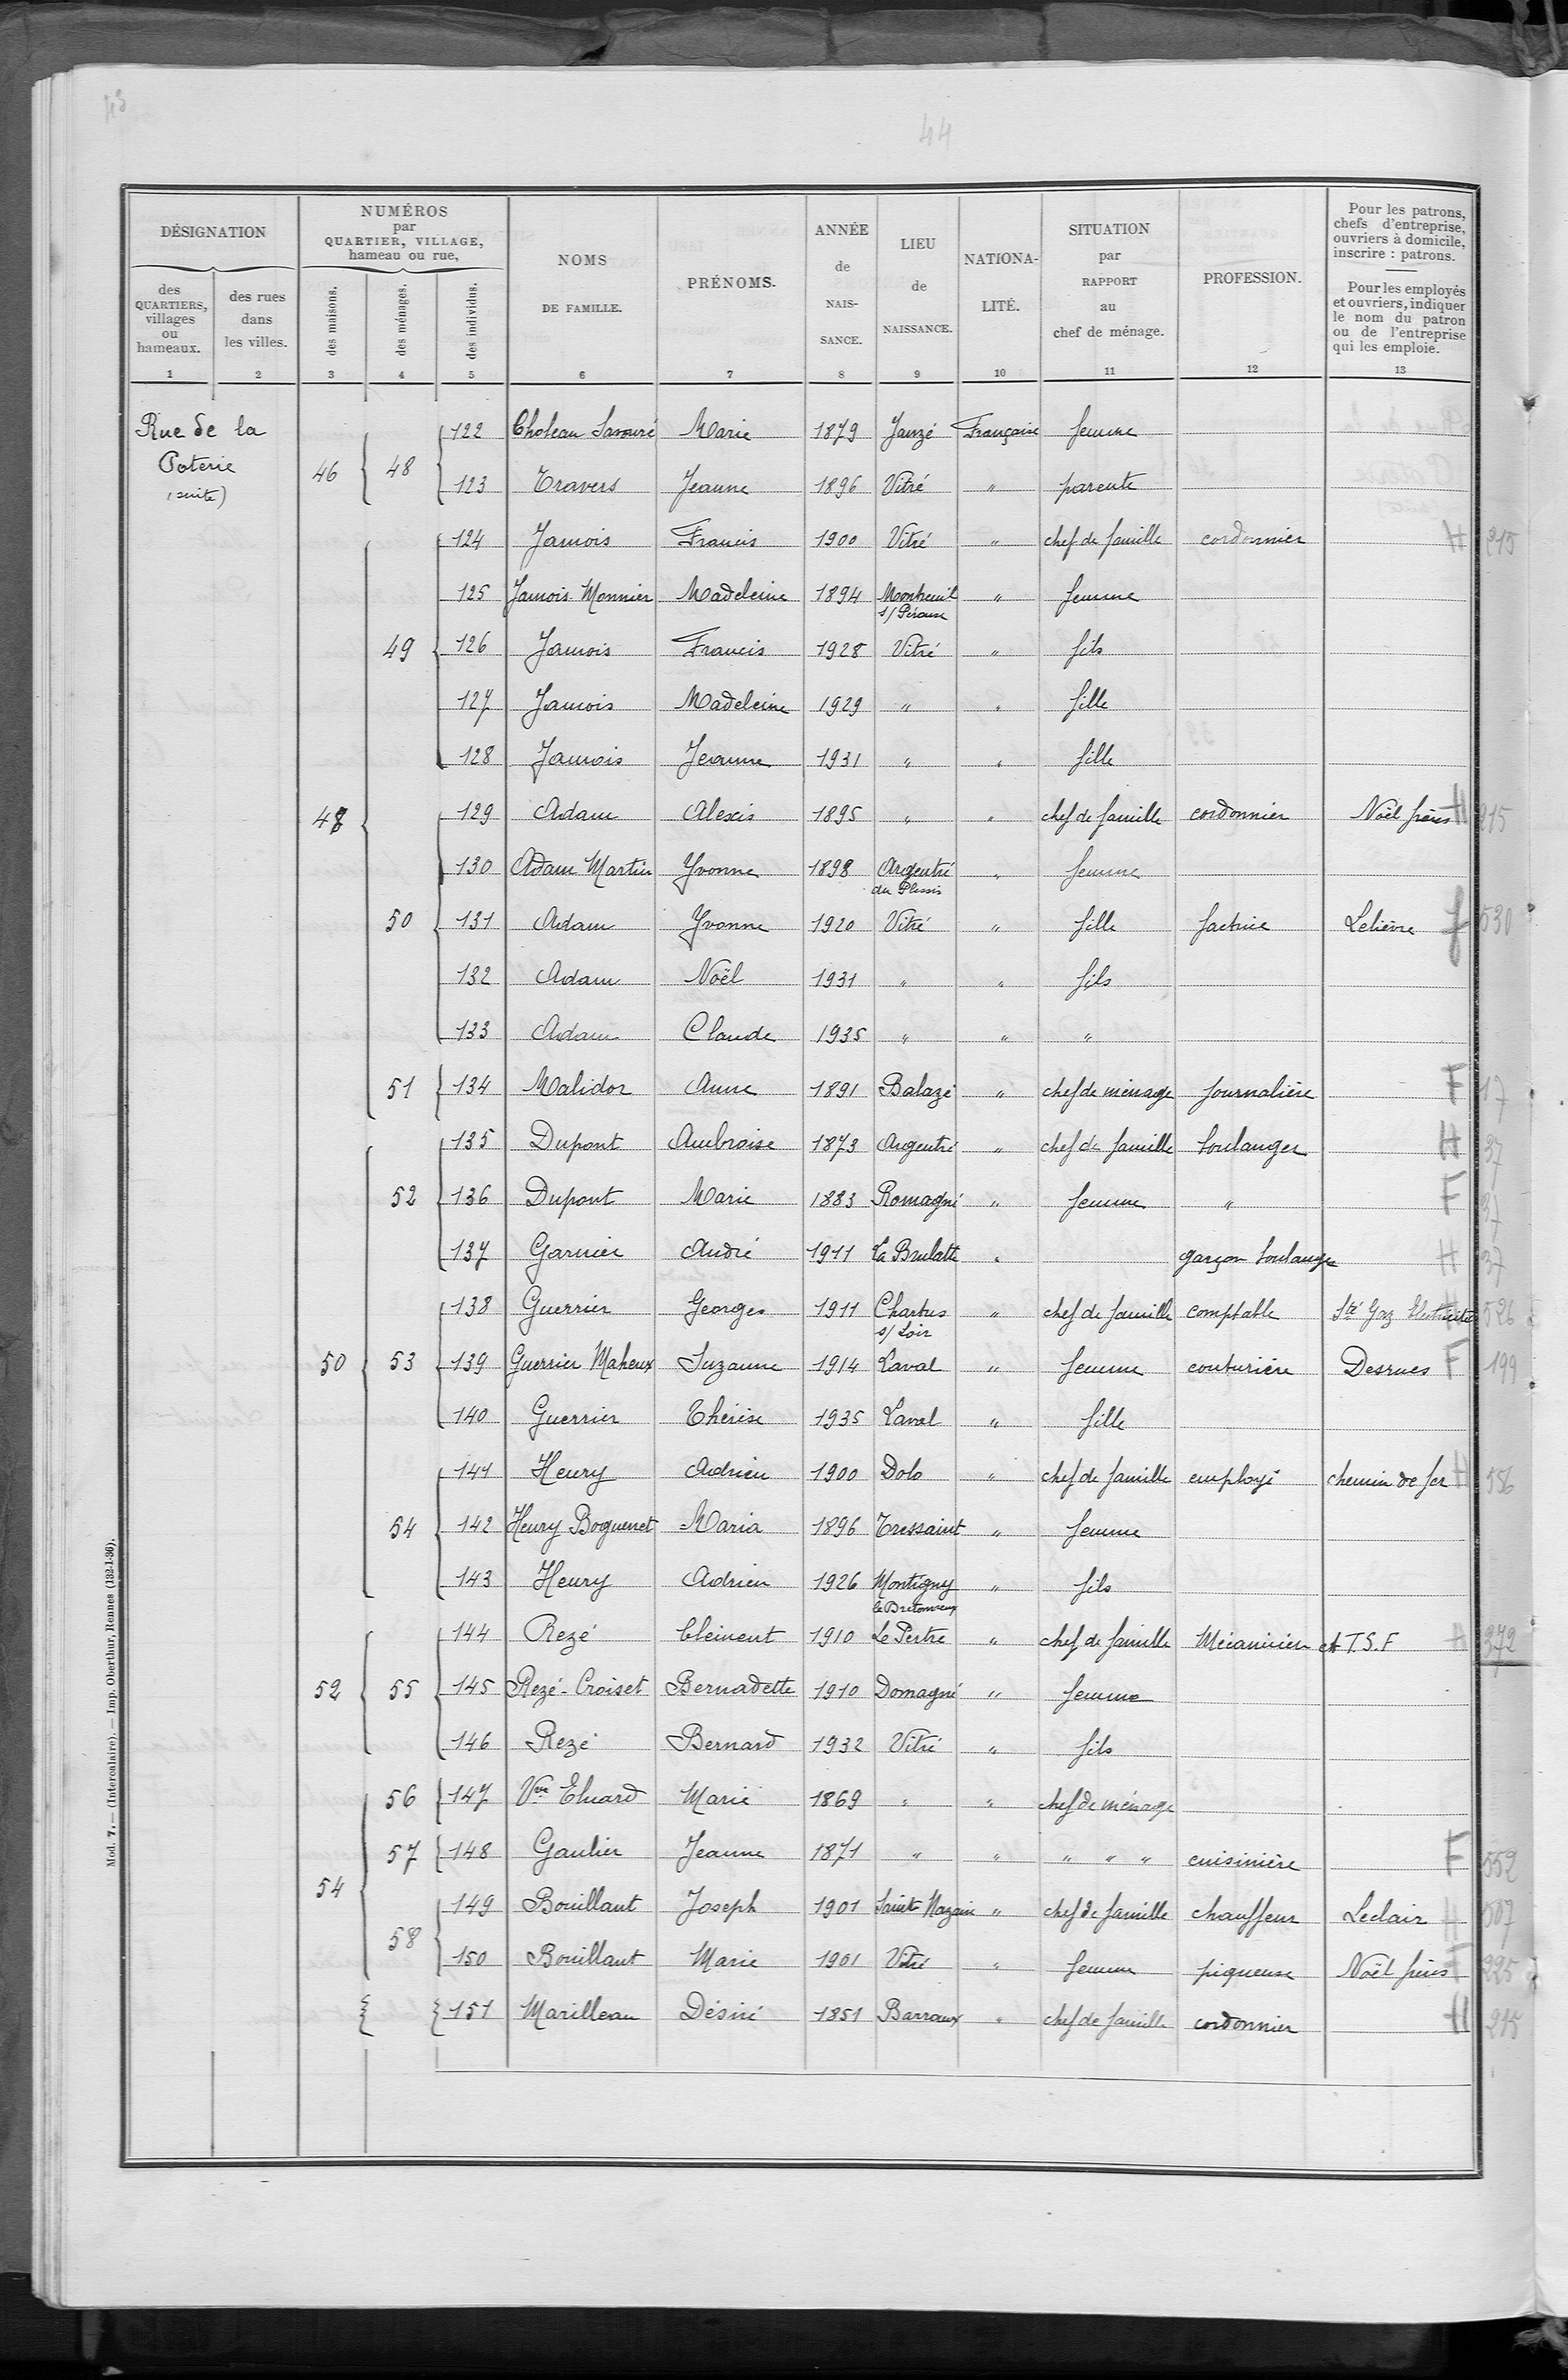 43
44
DÉSIGNATION
des QUARTIERS, villages ou hameaux.
des rues dans les villes.
NUMÉROS par QUARTIER, VILLAGE, hameau ou rue,
des maisons.
des ménages.
des individus.
NOMS DE FAMILLE.
PRÉNOMS.
ANNÉE de NAIS-SANCE.
LIEU de NAISSANCE.
NATIONA-LITÉ.
SITUATION par RAPPORT au chef de ménage.
PROFESSION.
Pour les patrons, chefs d'entreprise, ouvriers à domicile, inscrire : patrons.
Pour les employés et ouvriers, indiquer le nom du patron ou de l'entreprise qui les emploie.
1 2 3 4 5 6 7 8 9 10 11 12 13
Rue de la Poterie (suite)
46 48 122 Choleau Savouré Marie 1879 Janzé Française femme
123 Travers Jeanne 1896 Vitré " parente
48 49 124 Jamois Francis 1900 Vitré " chef de famille cordonnier H 215
125 Jamois Monnier Madeleine 1894 Montreuil s/ Pérouse " femme
126 Jamois Francis 1928 Vitré " fils
127 Jamois Madeleine 1929 " " fille
128 Jamois Jeanne 1931 " " fille
50 129 Adam Alexis 1895 " " chef de famille cordonnier Noël frères H 215
130 Adam Martin Yvonne 1898 Argentré du Plessis " femme
131 Adam Yvonne 1920 Vitré " fille factrice Lelièvre f 530
132 Adam Noël 1931 " " fils
133 Adam Claude 1935 " " "
51 134 Malidor Anne 1891 Balazé " chef de ménage journalière F 17
50 52 135 Dupont Ambroise 1873 Argentré " chef de famille boulanger H 37
136 Dupont Marie 1883 Romagné " femme " F 37
137 Garnier André 1911 La Brulatte " garçon boulanger H 37
53 138 Guerrier Georges 1911 Chartres s/ Loir " chef de famille comptable Sté Gaz Electricité 526
139 Guerrier Maheux Suzanne 1914 Laval " femme couturière Desrues F 199
140 Guerrier Thérèse 1935 Laval " fille
54 141 Henry Adrien 1900 Dolo " chef de famille employé chemin de fer H 556
142 Henry Boguenet Maria 1896 Tressaint " femme
143 Henry Adrien 1926 Montigny le Bretonneux " fils
52 55 144 Rezé Clément 1910 Le Pertre " chef de famille Mécanicien et T.S.F H 372
145 Rezé-Croiset Bernadette 1910 Domagné " femme
146 Rezé Bernard 1932 Vitré " fils
54 56 147 Vve Eluard Marie 1869 " " chef de ménage
57 148 Gaulier Jeanne 1871 " " " " " cuisinière F 552
58 149 Bouillaut Joseph 1901 Saint Nazaire " chef de famille chauffeur Leclair H 507
150 Bouillaut Marie 1901 Vitré " femme piqueuse Noël frères F 225
151 Marilleau Désiré 1851 Barraux " chef de famille cordonnier H 215
Mod. 7. — (Intercalaire). — Imp. Oberthur, Rennes (132-1-36).